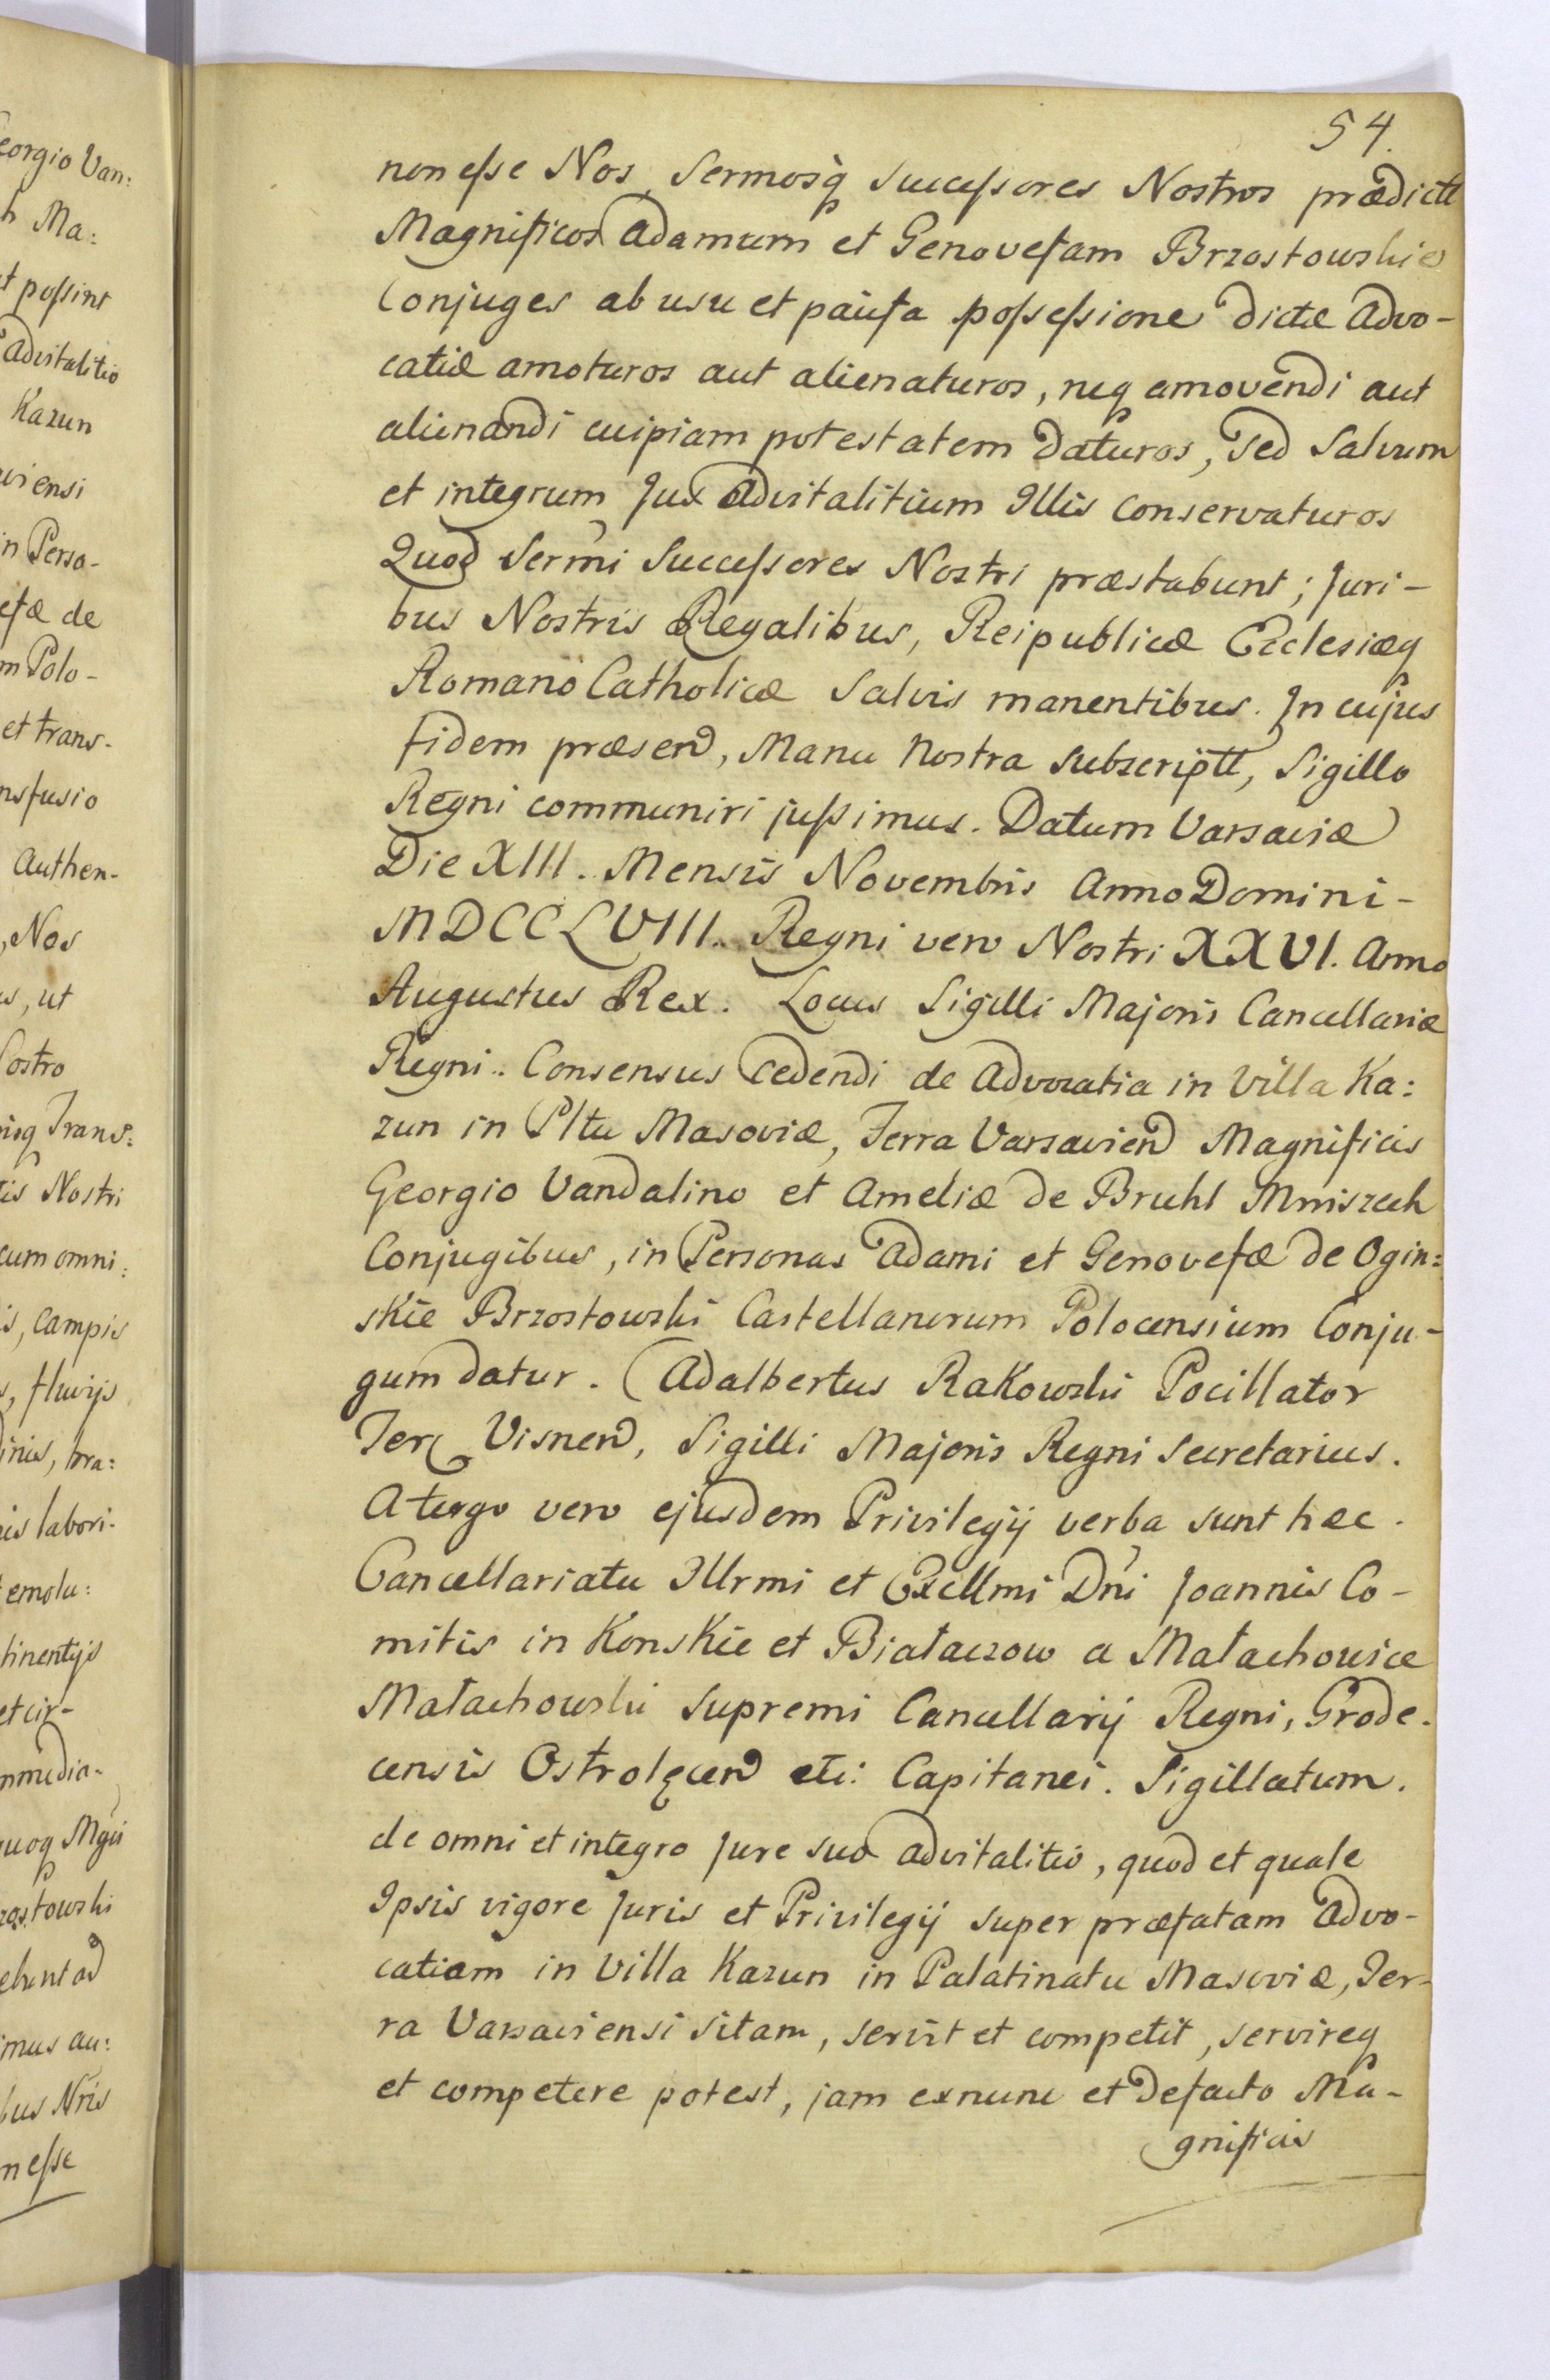 54.
non esse Nos, Sermosq́ Successores Nostros prædictt
Magnificos Adamum et Genovefam Brzostowskie
Conjuges ab usu et pacifa possessione dictæ Advo-
catiæ amoturos aut alienaturos, neq amovendi aut
alienandi cuipiam potestatem daturos, sed Salvum
et integrum Jus Advitalitium Illis conservaturos
Quod Sermi Successores Nostri præstabunt; Juri-
bus Nostris Regalibus, Reipublicæ Ecclesiæq
Romano Catholicæ Salvis manentibus. In cujus
fidem præsend, Manu Nostra subscriptt, Sigillo
Regni communiri jussimus. Datum Varsaviæ
Die XIII. Mensis Novembris Anno Domini-
MDCCLVIII. Regni vero Nostri XXVI. Anno
Augustus Rex. Locus Sigilli Majoris Cancellariæ
Regni.. Consensus cedendi de Advocatia in Villa Ka:
zun in Pltu Masoviæ, Terra Varsaviend Magnificis
Georgio Vandalino et Ameliæ de Bruhl Mniszech
Conjugibus, in Personas Adami et Genovefæ de Ogin:
skie Brzostowski Castellanorum Polocensium Conju-
gum datur. Adalbertus Rakowski Pocillator
Ter Visnend, Sigilli Majoris Regni Secretarius.
A tergo vero ejusdem Privilegij verba sunt hæc.
Cancellariatu Illrmi et Excllmi Dni Joannis Co-
mitis in Konskie et Białaczow a Małachowice
Małachowski Supremi Cancellarij Regni, Grode-
censis Ostrolęcend etc: Capitanei. Sigillatum.
de omni et integro Jure suo advitalitio, quod et quale
Ipsis vigore Juris et Privilegij super præfatam Advo-
catiam in Villa Kazun in Palatinatu Masoviæ, Ter-
ra Varsaviensi sitam, servit et competit, servireq
et competere potest, jam exnunc et defacto Ma-
gnificis
eorgio Van:
h Ma:
t possint
Advitalitio
Kazun
viensi
in Perso-
efæ de
m Polo-
et trans-
nsfusio
Authen-
, Nos
s, ut
ostro
nisq Trans:
tis Nostri
cum omni:
is, campis
s, fluvijs
labori-
emolu:
tinentijs
et cir-
mmedia-
quoq Mgci
zostowski
ebunt ad
imus au:
bus Nris
n esse